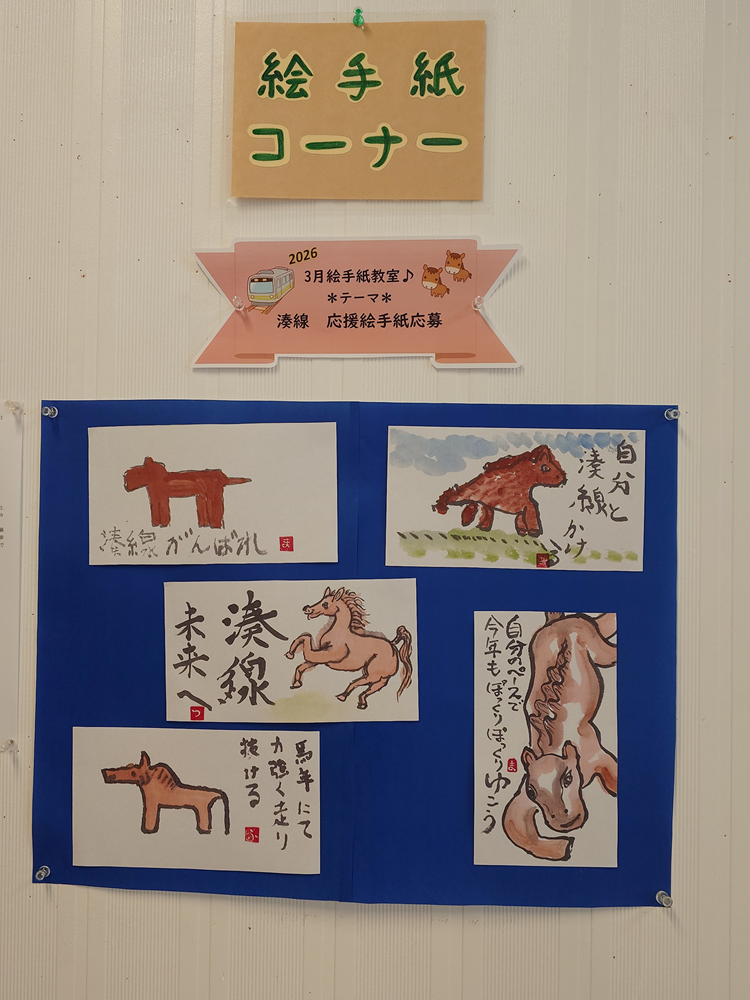 絵手紙
コーナー
2026
3月絵手紙教室♪
＊テーマ＊
湊線　応援絵手紙応募
湊線がんばれ
ま
自分と
湊線かけ
る
湊線
未来へ
つ
自分のペースで
今年もぽっくりぽっくりゆこう
ま
馬年にて
力強く走り
抜ける
ふ